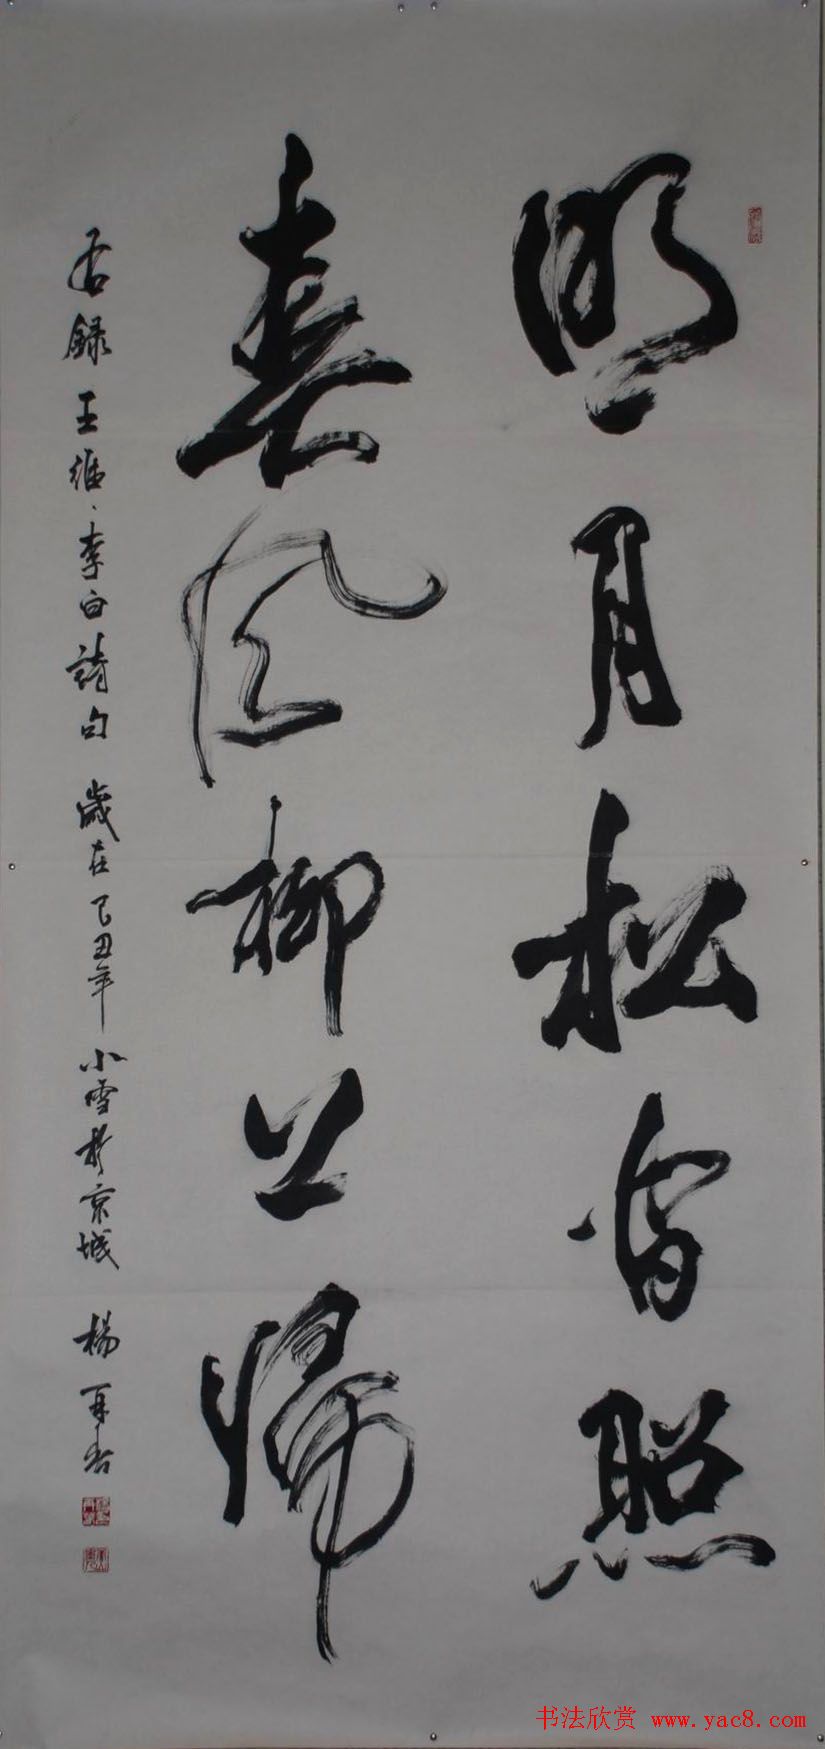 明月松間照
春風柳上歸
右錄王維、李白詩句 歲在己丑年小雪於京城 楊再春
书法欣赏 www.yac8.com